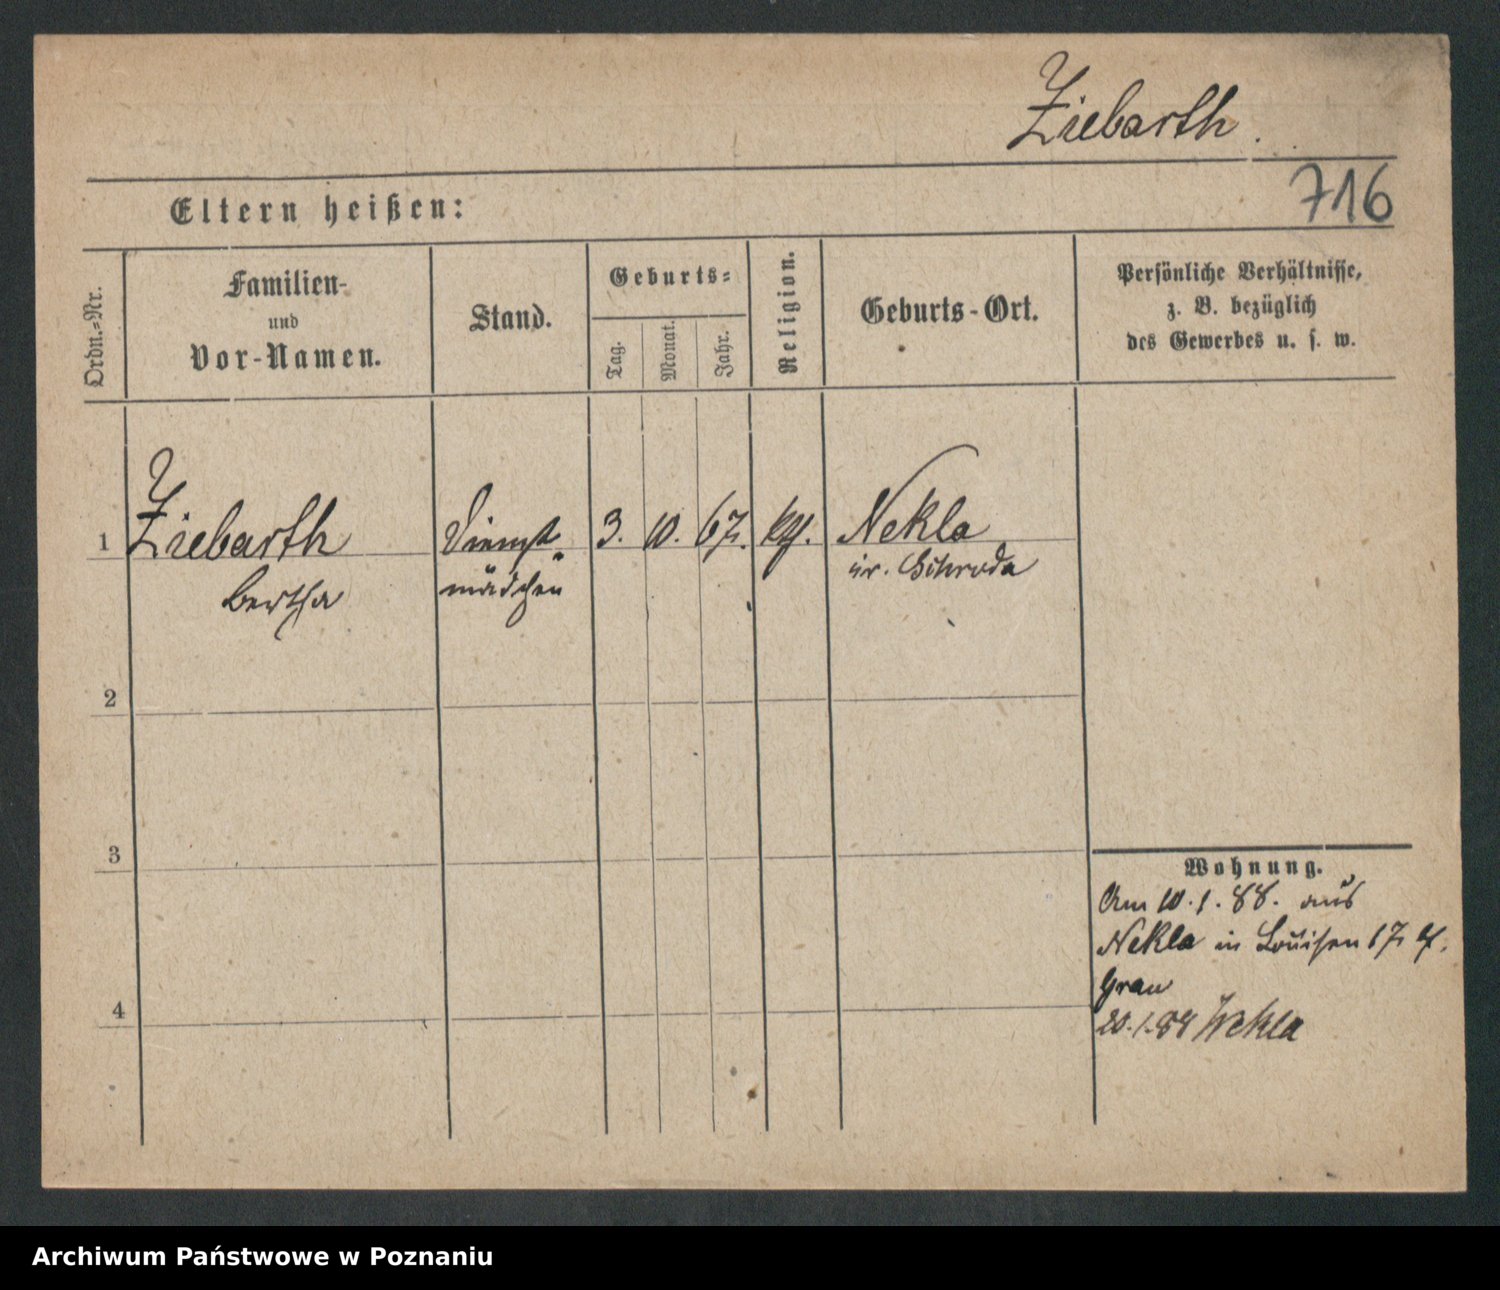 Ziebarth.
716
Eltern heißen:
Ordn.=Nr.
Familien-
und
Vor-Namen.
Stand.
Geburts=
Tag.
Monat.
Jahr.
Religion.
Geburts-Ort.
Persönliche Verhältnisse,
z. B. bezüglich
des Gewerbes u. s. w.
1 Ziebarth Dienst= 3. 10. 67. Nekla
Bertha mädchen Schroda
2
3
4
Wohnung.
Am 10.1.88. aus
Nekla in Louisen 17
Grau
20.1.88 Nekla
Archiwum Państwowe w Poznaniu